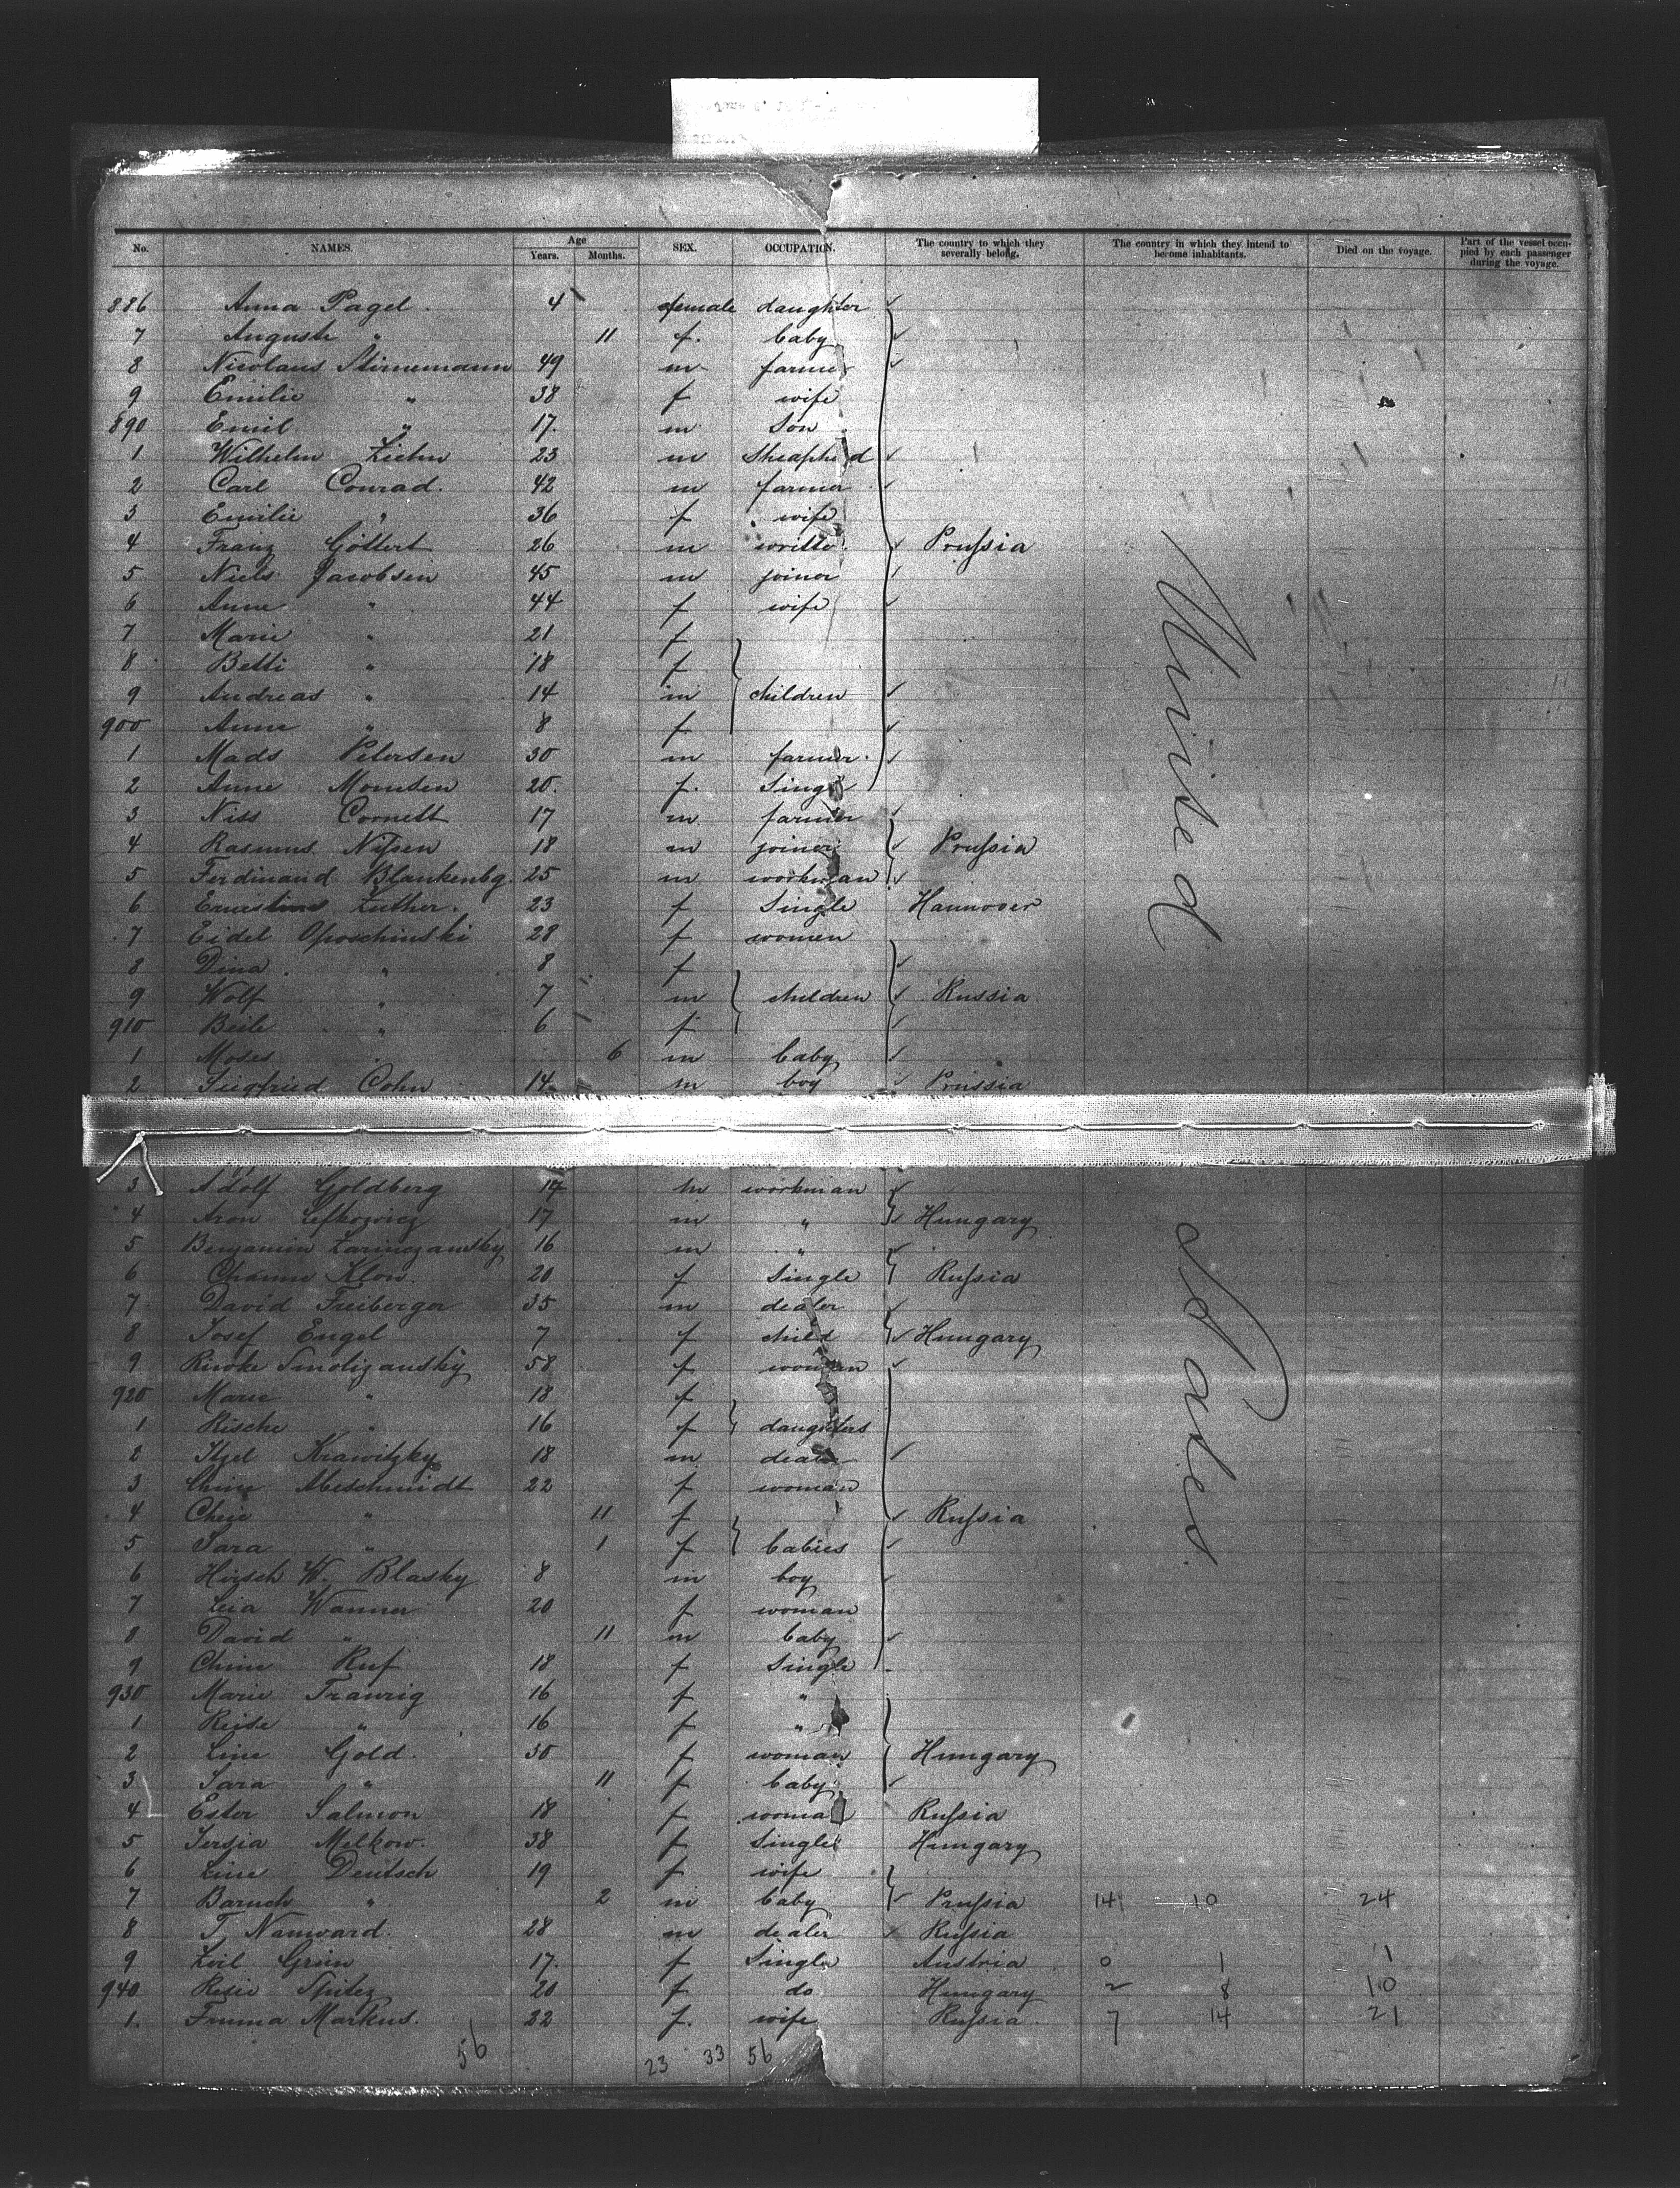 No. NAMES. Age Years. Months. SEX. OCCUPATION. The country to which they severally belong. The country in which they intend to become inhabitants. Died on the voyage. Part of the vessel occupied by each passenger during the voyage.
886 Anna Pagel. 4 female daughter
7 Auguste " 11 f. baby
8 Nicolaus Stinnemann 49 m farmer
9 Emilie " 38 f wife
890 Emil " 17. m Son
1 Wilhelm Ziehm 23 m Sheapherd
2 Carl Conrad. 42 m farmer
3 Emilie " 36 f wife
4 Franz Göttert 26 m Prußia
5 Niels Jacobsen 45 m joiner
6 Anne " 44 f wife
7 Marie " 21 f
8 Betti " 18 f
9 Andreas " 14 m children
900 Anne " 8 f
1 Mads Petersen 30 m farmer.
2 Anne Momsen 20. f. Single
3 Niss Cornett 17 m. farmer
4 Rasmus Nißen 18 m joiner Prußia
5 Ferdinand Blankenbg. 25 m workman
6 Luther. 23 f Single Hannover
7 Eidel Oposchinski 28 f women
8 Dina " 8 f
9 Wolf " 7 m children Russia
910 Beile " 6 f
1 Moses 6 m baby
2 Siegfried Cohn 14 m boy Prussia
3 Adolf Goldberg 17 m workman
4 Aron Lefkowicz 17 m " Hungary
5 Benjamin 16 m "
6 Klon. 20 f Single Rußia
7 David Freiberger 35 m dealer
8 Josef Engel 7 f child Hungary
9 58 f woman
920 Marie " 18 f
1 Rische " 16 f daughters
2 Itzel Krawitzky 18 m dealer
3 Chine Abeschmidt 22 f woman
4 " 11 f Rußia
5 Sara " 1 f babies
6 Hirsch W. Blasky 8 m boy
7 Leia Wanner 20 f woman
8 David " 11 m baby
9 Chine Ruf 18 f Single
930 Marie Traurig 16 f "
1 Reise " 16 f "
2 Line Gold. 30 f woman Hungary
3 Sara " 11 f baby
4 Ester Salmon 18 f woman Rußia
5 Melkow. 38 f Single Hungary
6 Line Deutsch 19 f wife
7 Baruch " 2 m baby Prußia 14 10 24
8 T. Nanward. 28 m dealer Rußia
9 Grün 17. f Single Austria 0 1 1
940 Resie Spitez 20 f do Hungary 2 8 10
1. Emma Markus. 22 f. wife Rußia 7 14 21
56 23 33 56
United
States